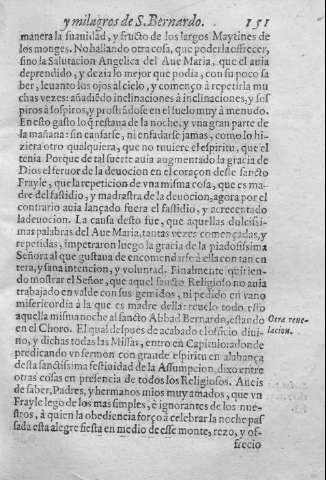 y milagros de S. Bernardo. 151
manera la suauidad, y fructo de los largos Maytines de
los monges. No hallando otra cosa, que poderla offrecer,
sino la Salutacion Angelica del Aue Maria, que el auia
deprendido, y dezia lo mejor que podia, con su poco sa
ber, leuanto los ojos al cielo, y començo à repetirla mu
chas vezes: añadiēdo inclinaciones à inclinaciones, y sos
piros à sospiros, y prostrādose en el suelo muy à menudo.
En esto gasto lo q̄ restaua de la noche, y vna gran parte de
la mañana: sin cansarse, ni enfadarse jamas, como lo hi-
ziera otro qualquiera, que no tuuiere el espiritu, que el
tenia. Porque de tal suerte auia augmentado la gracia de
Dios el feruor de la deuocion en el coraçon deste sancto
Frayle, que la repeticion de vna misma cosa, que es ma-
dre del fastidio, y madrastra de la deuocion, agora por el
contrario auia lançado fuera el fastidio, y acrecentado
la deuocion. La causa desto fue, que aquellas dulcissi-
mas palabras del Aue Maria, tantas vezes começadas, y
repetidas, impetraron luego la gracia de la piadosissima
Señora al que gustaua de encomendarse à ella con tan en
tera, y sana intencion, y voluntad. Finalmente quirien-
do mostrar el Señor, que aquel sancto Religioso no auia
trabajado en valde con sus gemidos, ni pedido en vano
misericordia à la que es madre della: reuelo todo esto
aquella misma noche al sancto Abbad Bernardo, estando
Otra reue-
en el Choro. El qual despues de acabado el officio diui-
lacion.
no, y dichas todas las Missas, entro en Capitulo: adonde
predicando vn sermon con grande espiritu en alabança
desta sanctissima festiuidad de la Assumpcion, dixo entre
otras cosas en presencia de todos los Religiosos. Aueis
de saber, Padres, y hermanos mios muy amados, que vn
Frayle lego de los mas simples, è ignorantes de los nue-
stros, à quien la obediencia forço à celebrar la noche pas
sada esta alegre fiesta en medio de esse monte, rezo, y of-
frecio